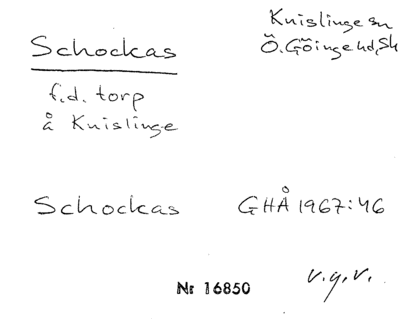 Knislinge sn
Schockas
Ö. Göinge hd, Sk
f.d. torp
å Knislinge
Schockas GHÅ 1967:46
Nr 16850
v.g.v.